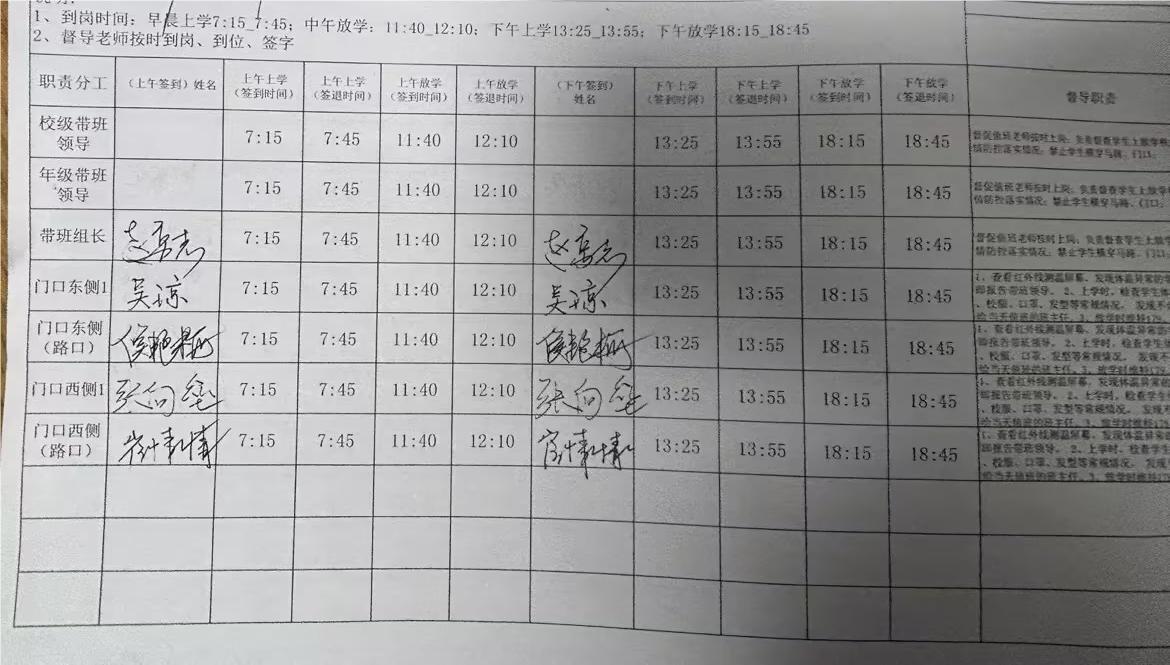 1、到岗时间：早晨上学7:15_7:45；中午放学：11:40_12:10；下午上学13:25_13:55；下午放学18:15_18:45
2、督导老师按时到岗、到位、签字
职责分工 （上午签到）姓名 上午上学（签到时间） 上午上学（签退时间） 上午放学（签到时间） 上午放学（签退时间） （下午签到）姓名 下午上学（签到时间） 下午上学（签退时间） 下午放学（签到时间） 下午放学（签退时间） 督导职责
校级带班领导 7:15 7:45 11:40 12:10 13:25 13:55 18:15 18:45
督促值班老师按时上岗；负责督查学生上放学
情防控落实情况；禁止学生横穿马路、门口；
年级带班领导 7:15 7:45 11:40 12:10 13:25 13:55 18:15 18:45
督促值班老师按时上岗；负责督查学生上放学
情防控落实情况；禁止学生横穿马路、门口；
带班组长 7:15 7:45 11:40 12:10 13:25 13:55 18:15 18:45
督促值班老师按时上岗；负责督查学生上放学
情防控落实情况；禁止学生横穿马路、门口；
门口东侧1 吴琼 7:15 7:45 11:40 12:10 吴琼 13:25 13:55 18:15 18:45
1、查看红外线测温屏幕，发现体温异常的
即报告带班领导。 2、上学时，检查学生体
、校服、口罩、发型等常规情况。 发现不
给当天值班的班主任。3、放学时维持
门口东侧（路口） 7:15 7:45 11:40 12:10 13:25 13:55 18:15 18:45
1、查看红外线测温屏幕，发现体温异常
即报告带班领导。 2、上学时，检查学生
、校服、口罩、发型等常规情况。 发现不
给当天值班的班主任。3、放学时维持
门口西侧1 7:15 7:45 11:40 12:10 13:25 13:55 18:15 18:45
1、查看红外线测温屏幕，发现体温异常
即报告带班领导。 2、上学时，检查学生
、校服、口罩、发型等常规情况。 发现
给当天值班的班主任。3、放学时维持
门口西侧（路口） 7:15 7:45 11:40 12:10 13:25 13:55 18:15 18:45
1、查看红外线测温屏幕，发现体温异常
即报告带班领导。 2、上学时，检查学
、校服、口罩、发型等常规情况。 发现
给当天值班的班主任。3、放学时维持